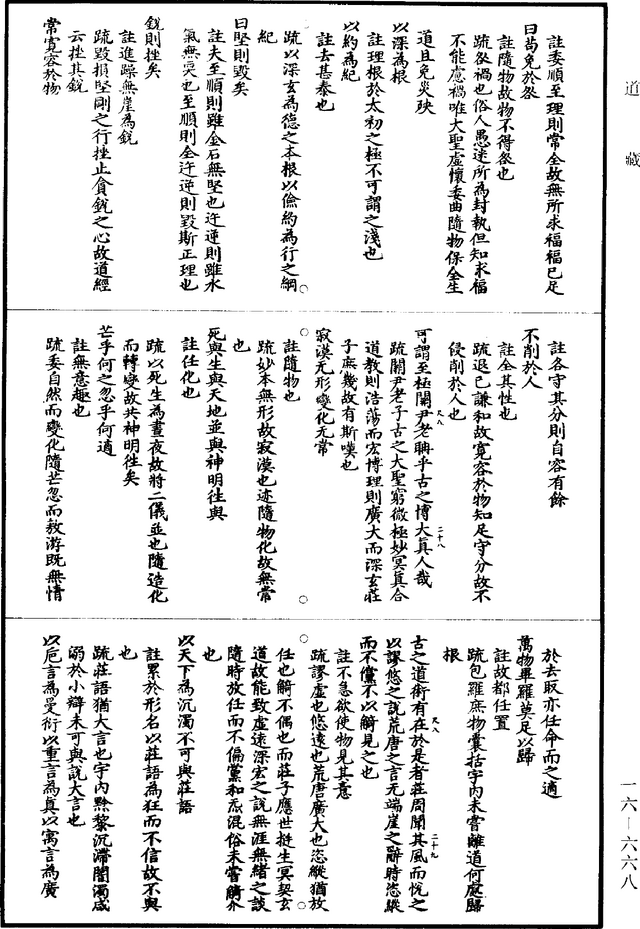 道藏
註委順至理則常全故無所求福福已足
曰苟免於咎
註隨物故物不得咎也
疏咎禍也俗人愚迷所為封執但知求福
不能慮禍唯大聖虛懷委曲隨物保全生
道且免災殃
以深為根
註理根於太初之極不可謂之淺也
以約為紀
註去甚泰也
疏以深玄為德之本根以儉約為行之綱
紀
曰堅則毀矣
註夫至順則雖金石無堅也迕逆則雖水
氣無耎也至順則全迕逆則毀斯正理也
銳則挫矣
註進躁無崖為銳
疏毀損堅剛之行挫止貪銳之心故道經
云挫其銳
常寬容於物
註各守其分則自容有餘
不削於人
註全其性也
疏退已謙和故寬容於物知足守分故不
侵削於人也
可謂至極關尹老聃乎古之博大真人哉
疏關尹老子古之大聖窮微極妙冥真合
道教則浩蕩而宏博理則廣大而深玄莊
子庶幾故有斯嘆也
寂漠无形變化无常
註隨物也
疏妙本無形故寂漠也迹隨物化故無常
也
死與生與天地並與神明往與
註任化也
疏以死生為晝夜故將二儀並也隨造化
而轉變故共神明往矣
芒乎何之忽乎何適
註無意趣也
疏委自然而變化隨芒忽而敖游既無情
於去取亦任命而之適
萬物畢羅莫足以歸
註故都任置
疏包羅庶物囊括宇內未嘗離道何處歸
根
古之道術有在於是者莊周聞其風而悅之
以謬悠之說荒唐之言无端崖之辭時恣縱
而不儻不以觭見之也
註不急欲使物見其意
疏謬虛也悠遠也荒唐廣大也恣縱猶放
任也觭不偶也而莊子應世挺生冥契玄
道故能致虛遠深宏之說無涯無緒之談
隨時放任而不偏黨和炁混俗未嘗觭介
也
以天下為沉濁不可與莊語
註累於形名以莊語為狂而不信故不與
也
疏莊語猶大言也宇內黔黎沉滯闇濁咸
溺於小辯未可與說大言也
以卮言為曼衍以重言為真以寓言為廣
一六—六六八